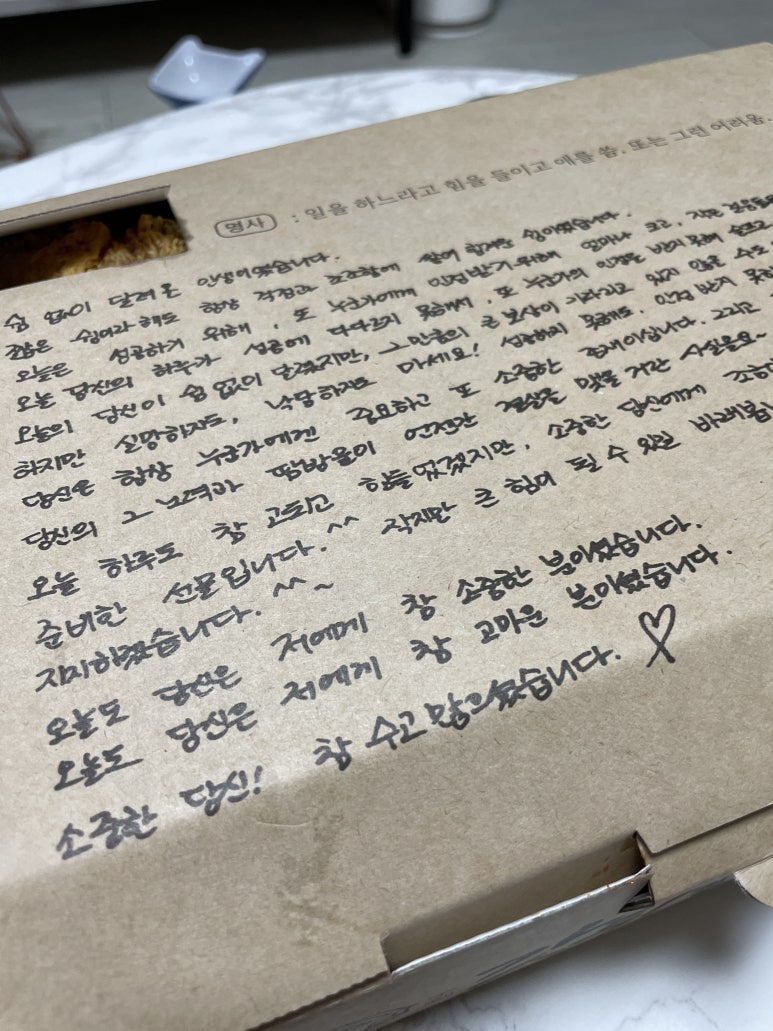 명사 : 일을 하느라고 힘을 들이고 애를 씀. 또는 그런 어려움.
쉼 없이 달려온 인생이었습니다.
짧은 쉼이라 해도 항상 걱정과 초조함에 쌓여 힘겨운 쉼이었습니다.
오늘은 성공하기 위해, 또 누군가에게 인정받기 위해 얼마나 크고, 작은
오늘 당신의 하루가 성공에 다다르지 못해서, 또 누군가의 인정을 받지 못해 슬프고
오늘의 당신이 쉼 없이 달렸지만, 그만큼의 큰 보상이 기다리고 있지 않을 수도
하지만 실망하지도, 낙망하지도 마세요! 성공하지 못해도, 인정 받지 못해도
당신은 항상 누군가에겐 중요하고 또 소중한 존재이십니다. 그리고
당신의 그 노력과 땀방울이 언젠간 결실을 맺을 거란 사실을요~
오늘 하루도 참 고되고 힘들었겠지만, 소중한 당신에게 조금이나마
준비한 선물입니다.^^ 작지만 큰 힘이 될 수 있길 바래봅니다
지치하졌습니다.^^~
오늘도 당신은 저에게 참 소중한 분이셨습니다.
오늘도 당신은 저에게 참 고마운 분이셨습니다.
소중한 당신! 참 수고 많으셨습니다. ♡